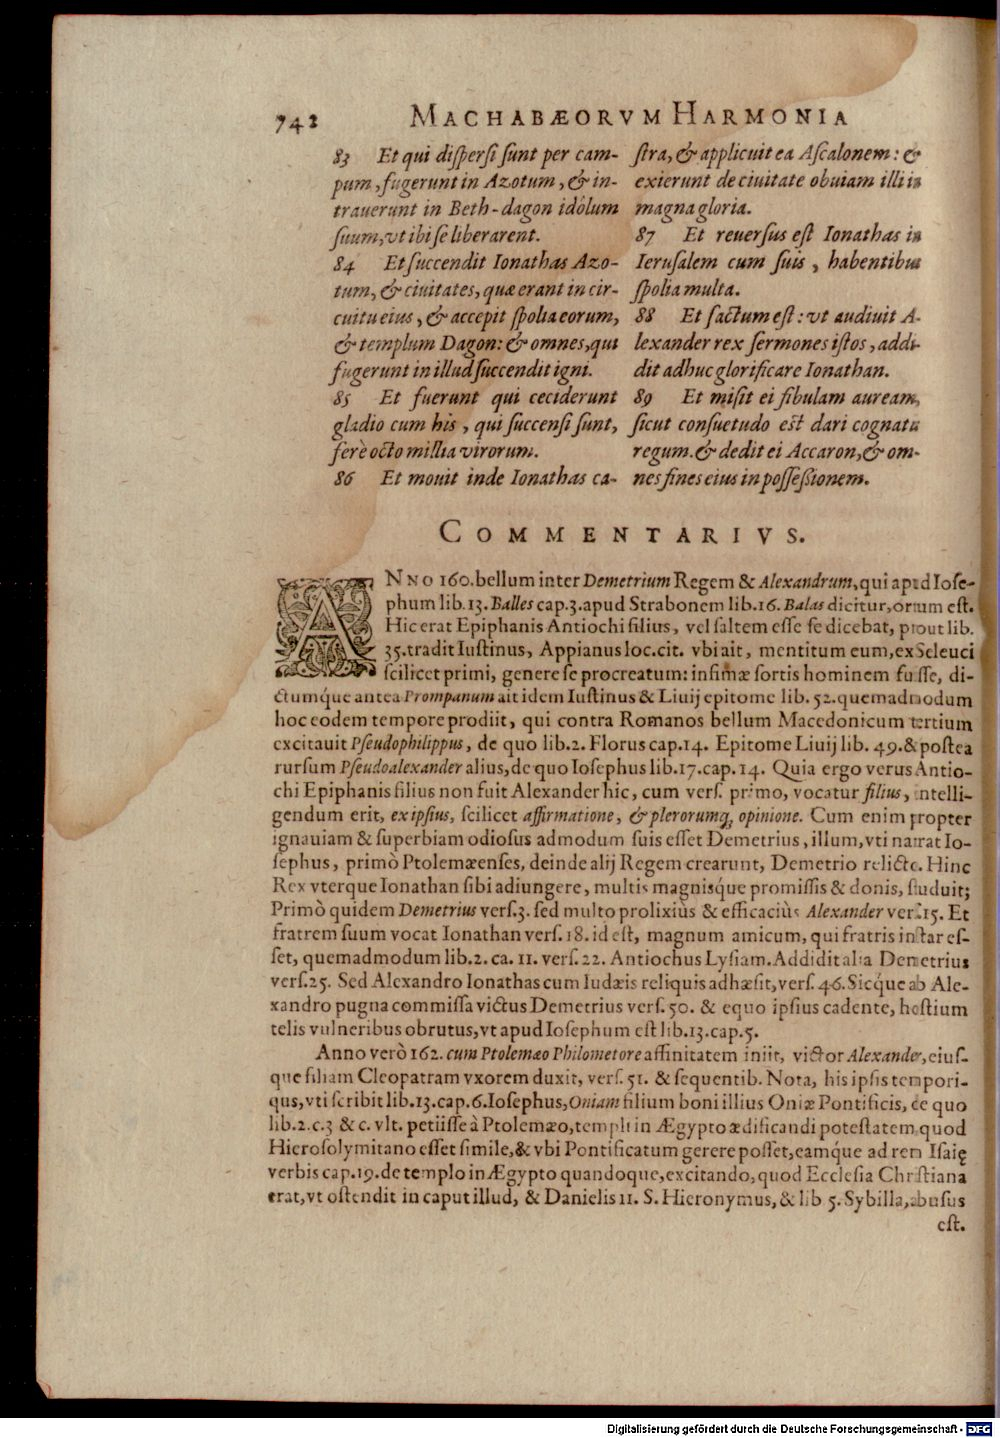 742 MACHABÆORVM HARMONIA
83 Et qui diſperſi ſunt per cam-
pum, fugerunt in Azotum, & in-
trauerunt in Beth-dagon idolum
ſuum, vt ibi ſe liberarent.
84 Et ſuccendit Ionathas Azo-
tum, & ciuitates, quæ erant in cir-
cuitu eius, & accepit ſpolia eorum,
& templum Dagon: & omnes, qui
fugerunt in illud ſuccendit igni.
85 Et fuerunt qui ceciderunt
gladio cum his, qui ſuccenſi ſunt,
ferè octo millia virorum.
86 Et mouit inde Ionathas ca-
ſtra, & applicuit ea Aſcalonem: &
exierunt de ciuitate obuiam illi in
magna gloria.
87 Et reuerſus eſt Ionathas in
Ieruſalem cum ſuis, habentibus
ſpolia multa.
88 Et factum eſt: vt audiuit A-
lexander rex ſermones iſtos, addi-
dit adhuc glorificare Ionathan.
89 Et miſit ei fibulam auream,
ſicut conſuetudo eſt dari cognatis
regum. & dedit ei Accaron, & om-
nes fines eius in poſſeßionem.
COMMENTARIVS.
ANNO 160. bellum inter Demetrium Regem & Alexandrum, qui apud Ioſe-
phum lib. 13. Balles cap. 3. apud Strabonem lib. 16. Balas dicitur, ortum eſt.
Hic erat Epiphanis Antiochi filius, vel ſaltem eſſe ſe dicebat, prout lib.
35. tradit Iuſtinus, Appianus loc. cit. vbi ait, mentitum eum, ex Seleuci
ſcilicet primi, genere ſe procreatum: infimæ ſortis hominem fuiſſe, di-
ctumq́ue antea Prompanum ait idem Iuſtinus & Liuij epitome lib. 52. quemadmodum
hoc eodem tempore prodiit, qui contra Romanos bellum Macedonicum tertium
excitauit Pſeudophilippus, de quo lib. 2. Florus cap. 14. Epitome Liuij lib. 49. & poſtea
rurſum Pſeudoalexander alius, de quo Ioſephus lib. 17. cap. 14. Quia ergo verus Antio-
chi Epiphanis filius non fuit Alexander hic, cum verſ. primo, vocatur filius, intelli-
gendum erit, ex ipſius, ſcilicet affirmatione, & plerorumq; opinione. Cum enim propter
ignauiam & ſuperbiam odioſus admodum ſuis eſſet Demetrius, illum, vti narrat Io-
ſephus, primò Ptolemæenſes, deinde alij Regem crearunt, Demetrio relicto. Hinc
Rex vterque Ionathan ſibi adiungere, multis magniſq́ue promiſſis & donis, ſtuduit;
Primò quidem Demetrius verſ. 3. ſed multo prolixiùs & efficaciùs Alexander verſ. 15. Et
fratrem ſuum vocat Ionathan verſ. 18. id eſt, magnum amicum, qui fratris inſtar eſ-
ſet, quemadmodum lib. 2. ca. 11. verſ. 22. Antiochus Lyſiam. Addidit alia Demetrius
verſ. 25. Sed Alexandro Ionathas cum Iudæis reliquis adhæſit, verſ. 46. Sicq́ue ab Ale-
xandro pugna commiſſa victus Demetrius verſ. 50. & equo ipſius cadente, hoſtium
telis vulneribus obrutus, vt apud Ioſephum eſt lib. 13. cap. 5.
Anno verò 162. cum Ptolemæo Philometore affinitatem iniit, victor Alexander, eiuſ-
que filiam Cleopatram vxorem duxit, verſ. 51. & ſequentib. Nota, his ipſis tempori-
bus, vti ſcribit lib. 13. cap. 6. Ioſephus, Oniam filium boni illius Oniæ Pontificis, de quo
lib. 2. c. 3 & c. vlt. petiiſſe à Ptolemæo, templi in Ægypto ædificandi poteſtatem, quod
Hieroſolymitano eſſet ſimile, & vbi Pontificatum gerere poſſet, eamq́ue ad rem Iſaię
verbis cap. 19. de templo in Ægypto quandoque, excitando, quod Eccleſia Chriſtiana
erat, vt oſtendit in caput illud, & Danielis 11. S. Hieronymus, & lib 5. Sybilla, abuſus
eſt.
Digitalisierung gefördert durch die Deutsche Forschungsgemeinschaft - DFG